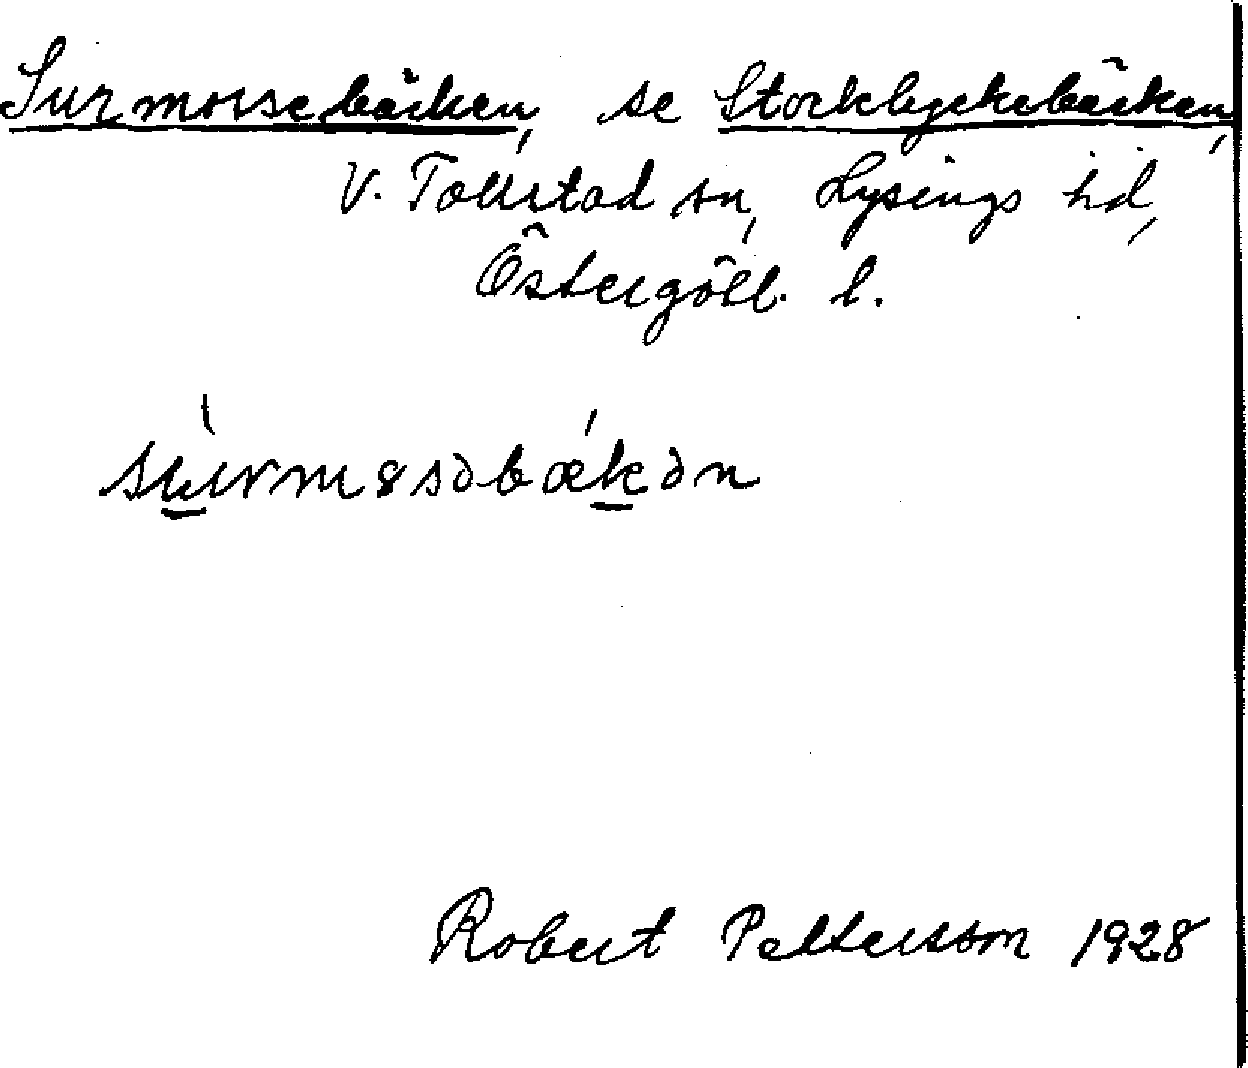 Surmossebäcken, se Stocklyckebäcken,
V. Tollstad sn, Lysings hd,
Östergötl. l.
sùrmɞsəbǽkən
Robert Pettersson 1928